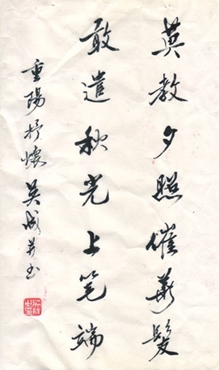 莫教夕照催華髮
敢遣秋光上笔端
重陽抒懷 吴成并书